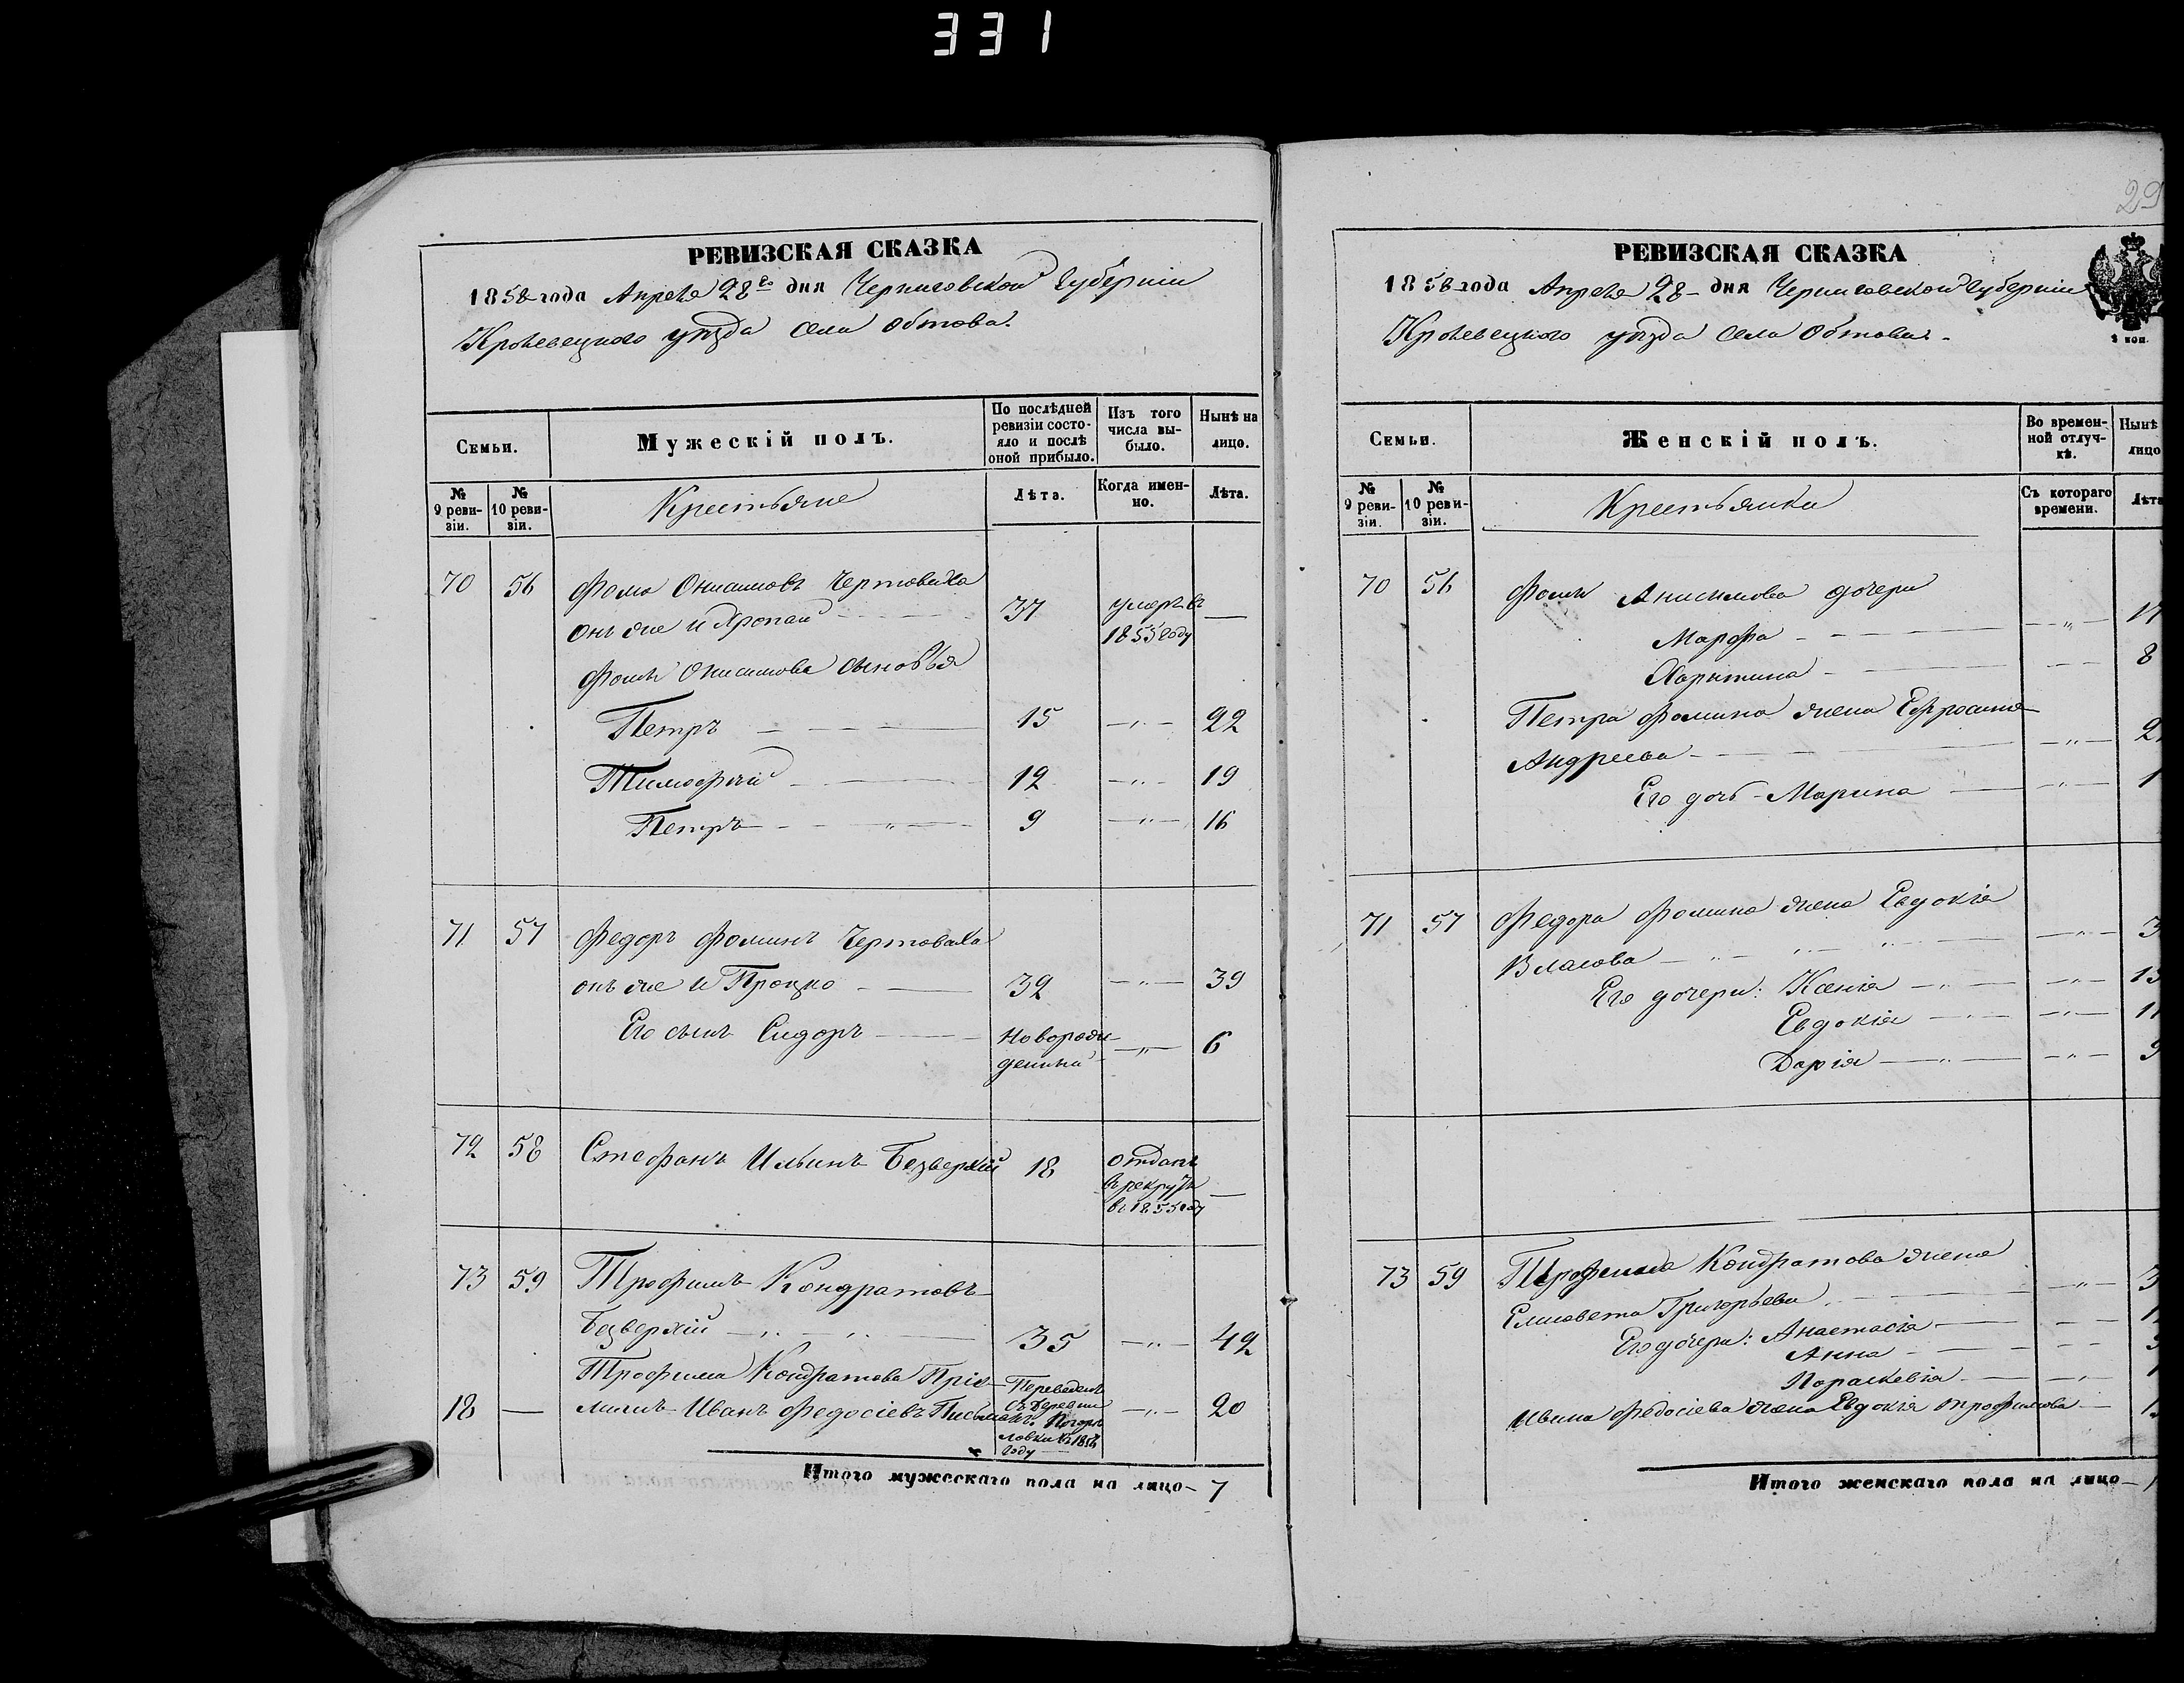 331
РЕВИЗСКАЯ СКАЗКА
1858 года Апреля 28го дня Черниговской Губерніи
Кролевецкого уѣзда Села Обтова.
Семьи.
Мужескій полъ.
По послѣдней ревизіи состояло и послѣ оной прибыло.
Изъ того числа выбыло.
Нынѣ на лицо.
№ 9 ревизіи.
№ 10 ревизіи.
Крестьяне
Лѣта.
Когда именно.
Лѣта.
70 56 Фома Онисимовъ
онъ же и 37 умеръ въ 1855 году —
Фомы Онисимова сыновья
Петръ 15 — „ — 22
Тимофѣй 12 — „ — 19
Петръ 9 — „ — 16
71 57 Федоръ Фоминъ
онъ же и Процко 32 — „ — 39
Его сынъ Сидоръ новорожденный — „ — 6
72 58 Стефанъ Ильинъ Безверхій 18 отданъ в рекруты в 1855 году —
73 59 Трофимъ Кондратовъ
Безверхій 35 — „ — 42
Трофима Кондратова Пріе-
18 — мышъ Иванъ Федосіевъ Переведенъ съ деревни году — „ — 20
Итого мужескаго пола на лицо — 7
29
РЕВИЗСКАЯ СКАЗКА
1858 года Апреля 28 дня Черниговской Губерніи
Кролевецкого уѣзда Села Обтова.
1 коп.
Семьи.
Женскій полъ.
Во временной отлучкѣ.
Нынѣ лицо
№ 9 ревизіи.
№ 10 ревизіи.
Крестьянки
Съ котораго времени.
Лѣта
70 56 Фомы Анисимова дочери
Марфа — „ — 17
Харытина — 8
Петра Фомина жена Ефросинія
Андреева — „ — 2
Его дочь Марина — „ — 1
71 57 Федора Фомина жена Евдокія
Власова — „ — 3
Его дочери: Ксенія — „ — 13
Евдокія — „ — 11
Дарія — „ — 9
73 59 Трофима Кондратова жена
Елисавета Григорьева — „ — 3
Его дочери: Анастасія — 1
Анна —
Параскевія — „ — 1
Ивана Федосіева жена Евдокія Трофимова — 1
Итого женскаго пола на лицо — 1